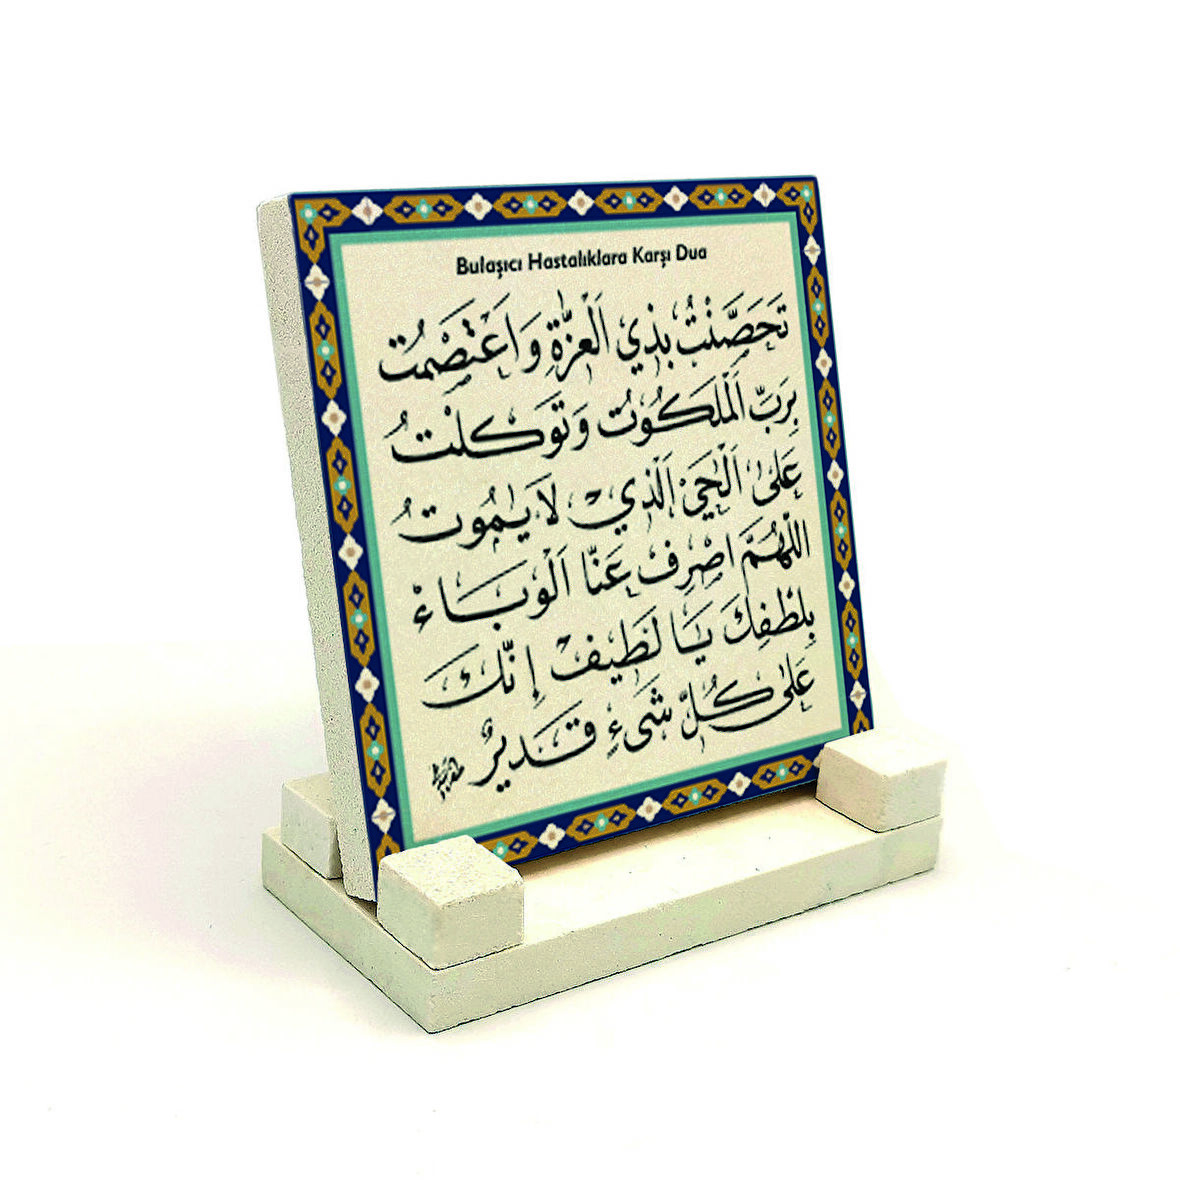 Bulaşıcı Hastalıklara Karşı Dua
تَحَصَّنْتُ بِذِي الْعِزَّةِ وَاعْتَصَمْتُ
بِرَبِّ الْمَلَكُوتِ وَتَوَكَّلْتُ
عَلَى الْحَيِّ الَّذِي لَا يَمُوتُ
اللّٰهُمَّ اصْرِفْ عَنَّا الْوَبَاءَ
بِلُطْفِكَ يَا لَطِيفُ إِنَّكَ
عَلَى كُلِّ شَيْءٍ قَدِيرٌ